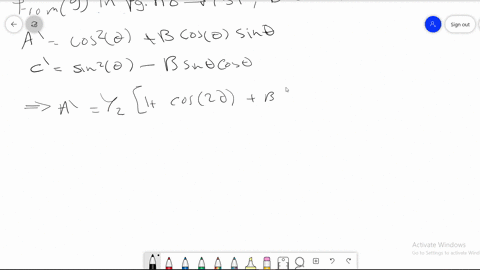 Sign out
A' = cos²(θ) + B cos(θ) sinθ
c' = sin²(θ) − B sinθ cosθ
⇒ A' = 1/2 [1 + cos(2θ) + B
Activate Windows
Go to Settings to activate Windows.